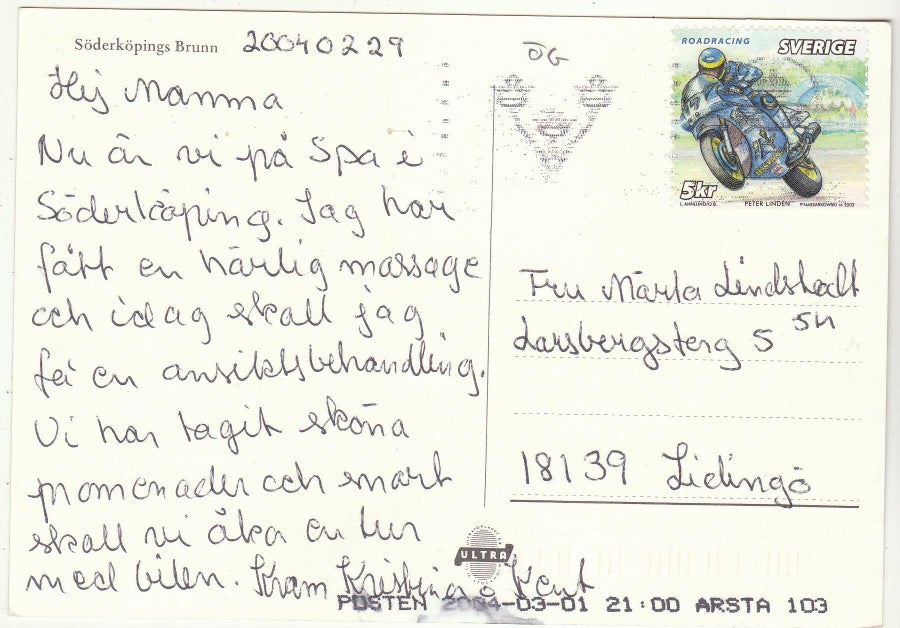 Söderköpings Brunn 20040229
Hej Mamma
Nu är vi på Spa i
Söderköping. Jag har
fått en härlig massage
och idag skall jag
få en ansiktsbehandling.
Vi har tagit sköna
promenader och snart
skall vi åka en tur
med bilen. Kram Kristina o Kent
ÖG
ROADRACING SVERIGE
5kr
PETER LINDEN
Fru Märta Lindstedt
Larsbergsterg 5 5tr
18139 Lidingö
ULTRA
POSTEN 2004-03-01 21:00 ARSTA 103